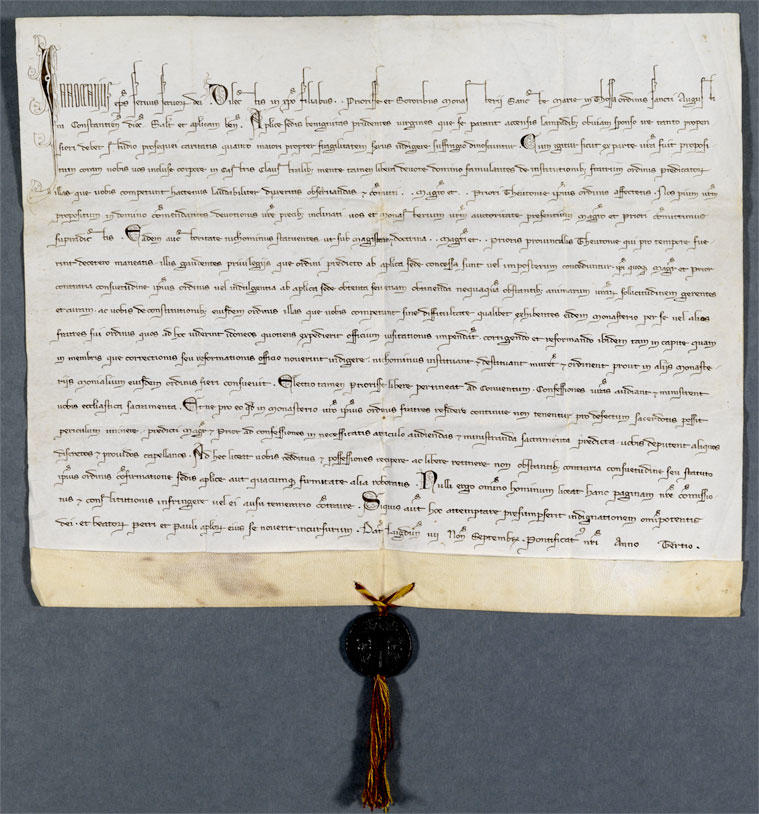 INNOCENTIUS eps servus servor dei. Dilectis in xpo filiabus. Priorisse et Sororibus monasterij Sancte marie in Thossa ordinis sancti Augusti
in Constantien dioc Salt et aplicam ben. Aplice sedis benignitas prudentes virgines que se parant accensis lampadib obviam sponso ire tanto propen
siori debet studio prosequi caritatis quanto maiori propter fragilitatem sexus indigere suffragio dinoscuntur. Cum igitur sicut ex parte vra fuit proposi
tum coram nobis vos incluse corpore in castris claustralib mente tamen libera devote domino famulantes de institutionib fratrum ordinis predicator
illas que vobis competunt hactenus laudabiliter duxeritis observandas et committi . . magro et . . Priori Theutonie ipius ordinis affectetis. Nos pium vrm
propositum in domino commendantes devotionis vre precib inclinati vos et monasterium vrm auctoritate presentium magro et Priori committimus
supradictis. Eadem auctoritate nichominus statuentes ut sub magisterio et doctrina . . magri et . . Prioris provincialis Theutonie qui pro tempore fue
rint decetero maneatis illis gaudentes privilegijs que ordini predicto ab aplica sede concessa sunt vel imposterum concedentur. ipi quoq magr et Prior
contraria consuetudine ipius ordinis vel indulgentia ab aplica sede obtenta seu etiam obtinenda nequaqua obstantib animarum vrar sollicitudinem gerentes
et curam. ac vobis de constitutionib eiusdem ordinis illas que vobis competunt sine difficultate qualibet exhibentes eidem monasterio per se vel alios
fratres sui ordinis quos ad hoc viderint idoneos quotiens expedierit officium visitationis impendat. corrigendo et reformando ibidem tam in capite quam
in membris que correctionis seu reformationis officio noverint indigere. nichominus instituant et destituant mutet et ordinent prout in alijs monaste
rijs monialium eiusdem ordinis fieri consuevit. Electio tamen Priorisse libere pertineat ad Conventum. Confessiones vras audiant et ministrent
vobis ecclastica sacramenta. Et ne pro eo qd in monasterio vro ipius ordinis fratres residere continue non tenentur pro defectum sacerdotis possit
periculum iminere. predicti magr et Prior ad confessiones in necessitatis articulo audiendas et ministranda sacramenta predicta vobis deputent aliquos
discretos et providos capellanos. Ad hec liceat vobis redditus et possessiones recipere ac libere retinere non obstantib contraria consuetudine seu statuto
ipius ordinis confirmatione sedis aplice aut quacumq firmitate alia roboratis. Nulli ergo omnino hominum liceat hanc paginam nre comissio
nis et constitutionis infringere vel ei ausu temerario contraire. Siquis aut hoc attemptare presumpserit indignationem omipotentis
dei. et beator Petri et Pauli aplor eius se noverit incursurum. Dat Lugdun iiii Non Septembr. Pontificat nri Anno Tertio.